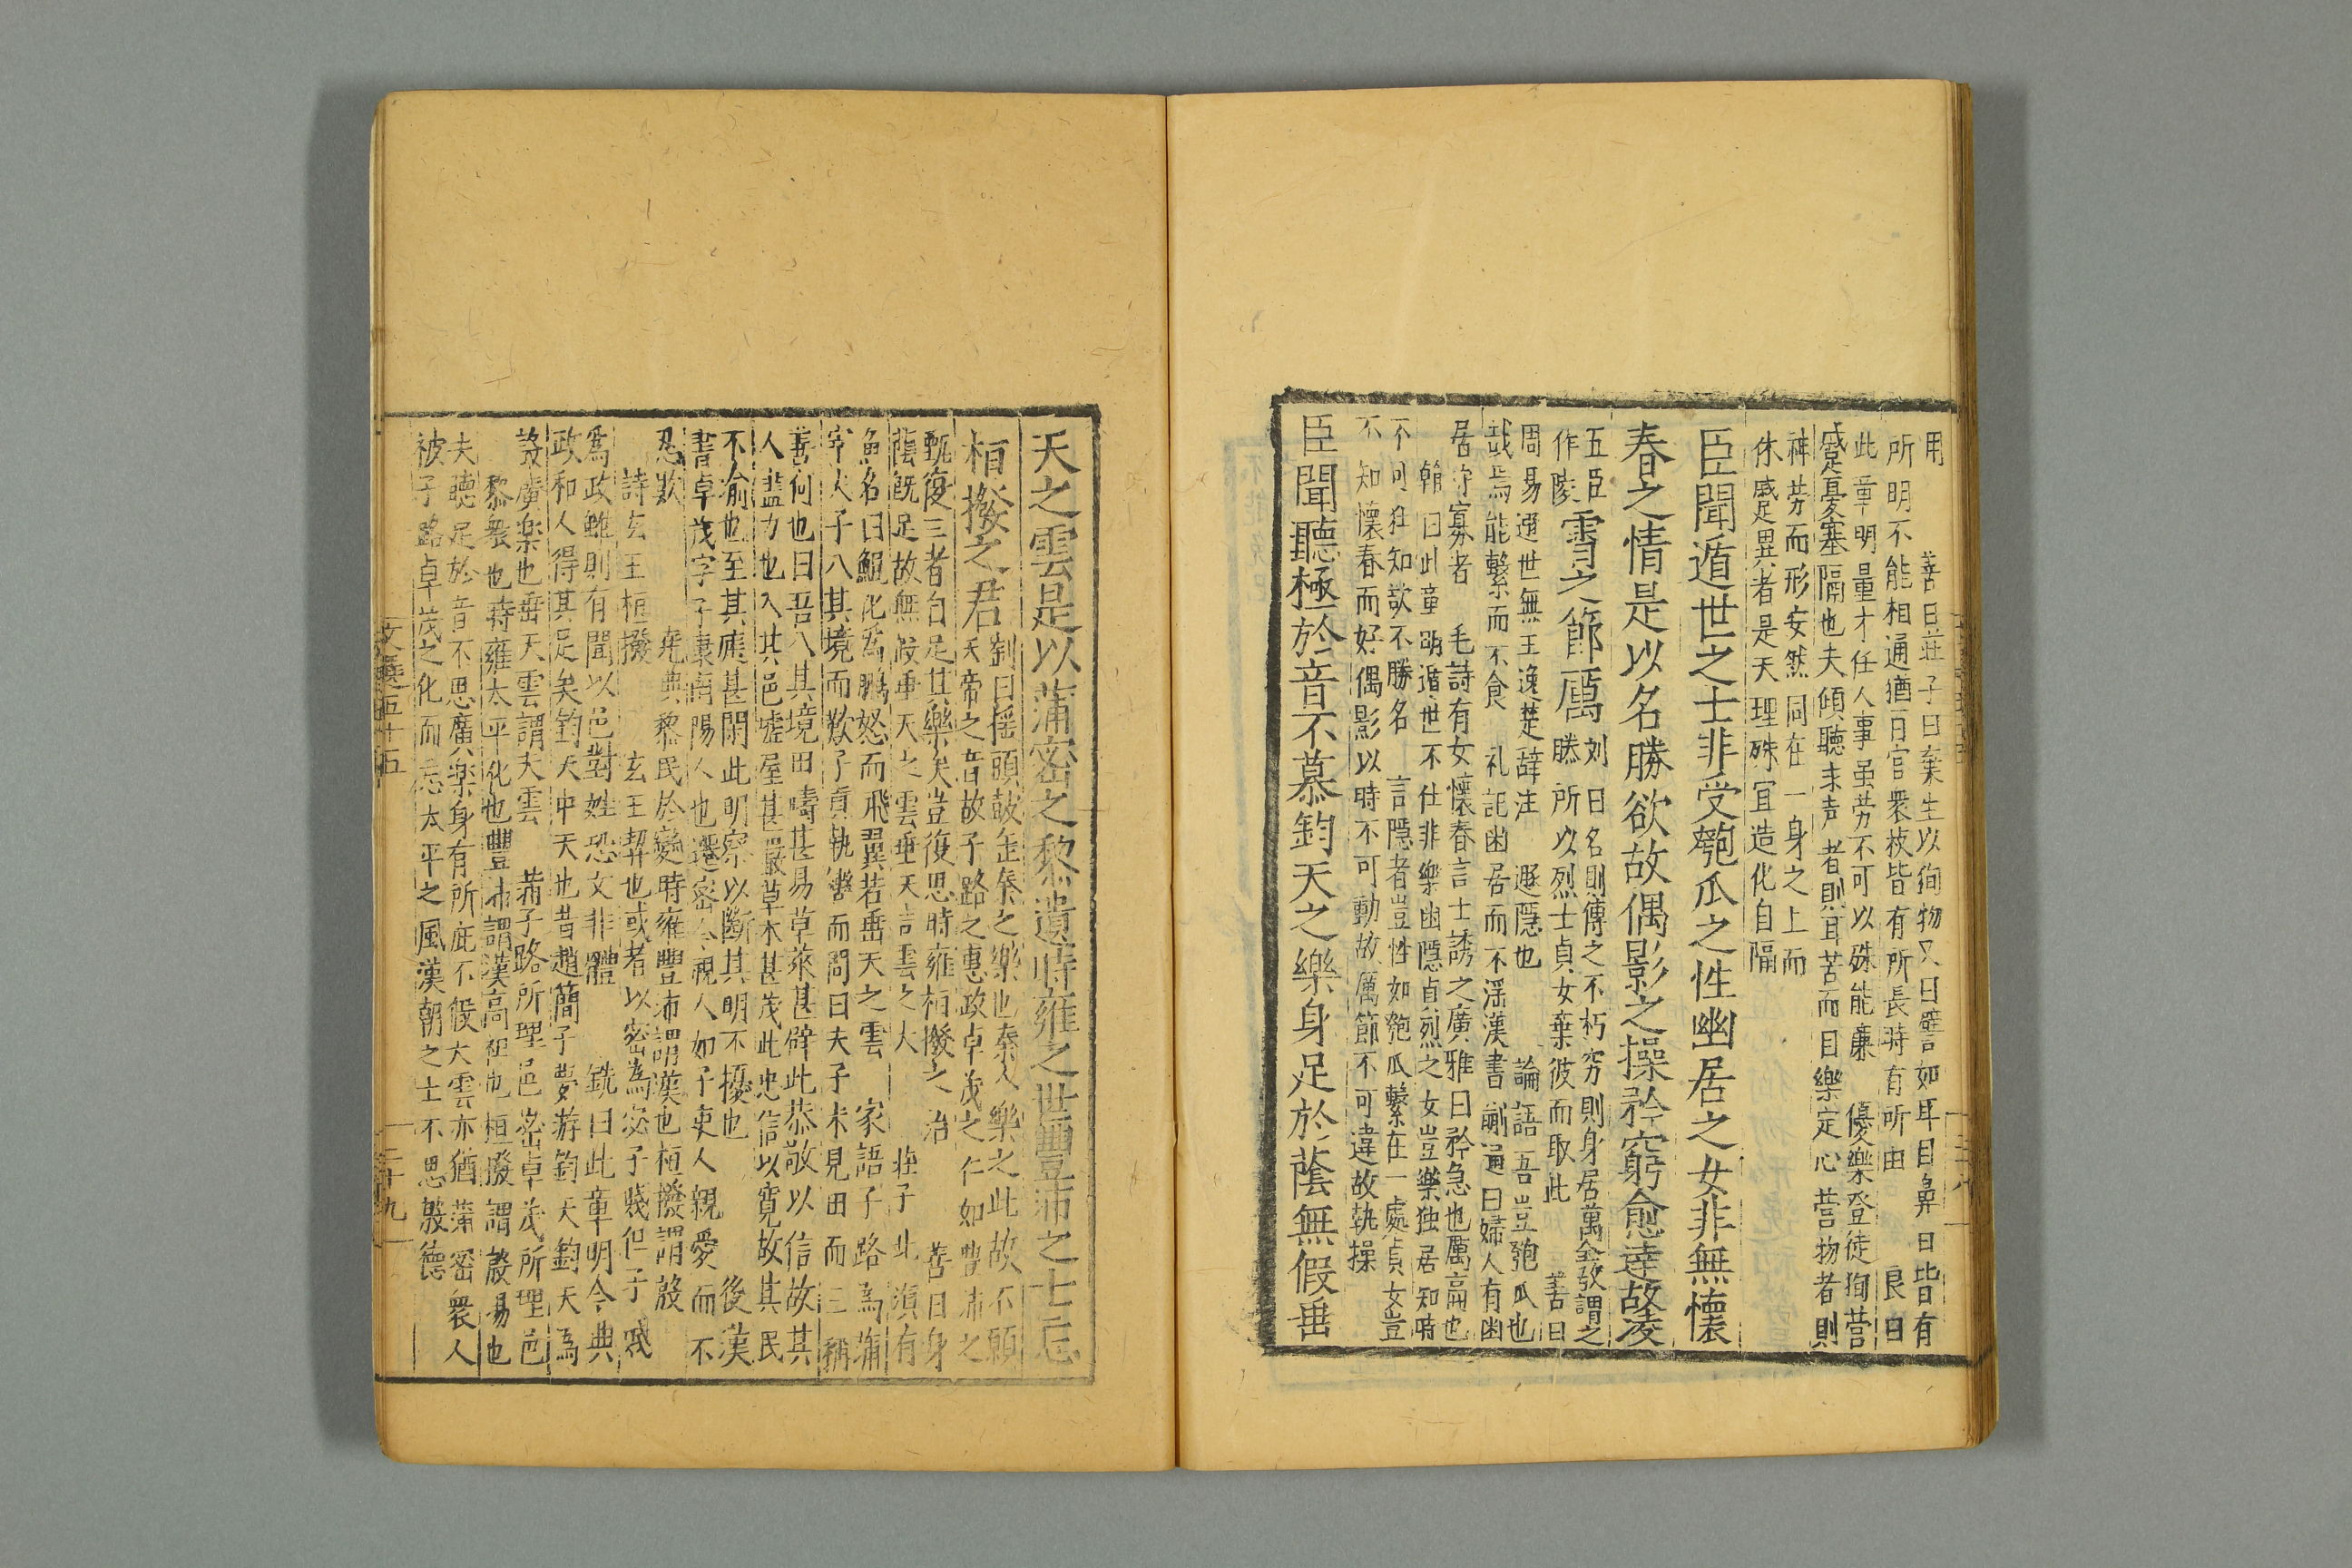 用
善曰莊子曰棄生以徇物又曰譬如耳目鼻口皆有
所明不能相通猶百官衆技皆有所長時有所由
良曰
此章明量才任人事虽劳不可以殊能廉
優樂登徒狥营
蹙憂塞隔也夫傾聽末声者則耳苦而目樂定心营物者則
神劳而形安然同在一身之上而
休蹙異者是天理殊宜造化自隔
臣聞遁世之士非受匏瓜之性幽居之女非無懷
春之情是以名勝欲故偶影之操矜窮愈達故凌
五臣作陵
霄之節厲
刘曰名則傳之不朽穷則身居萬全故謂之
勝所以烈士貞女棄彼而取此
善曰
周易遁世無王逸楚辞注
遯隱也
論語吾豈匏瓜也
哉焉能繫而不食
礼記幽居而不淫漢書蒯通曰婦人有幽
居守寡者
毛詩有女懷春言士誘之廣雅曰矜急也厲高也
翰曰此章明遁世不仕非樂幽隱貞烈之女豈樂独居知時
不可往知欲不勝名
言隱者豈性如匏瓜繫在一處貞女豈
不知懷春而好偶影以時不可動故厲節不可違故執操
臣聞聽極於音不慕鈞天之樂身足於蔭無假垂
天之雲是以蒲密之黎遺時雍之世豐沛之士忘
桓撥之君
劉曰搖頭鼓缶秦之樂也秦人樂之此故不願
天帝之音故子路之惠政卓茂之仁如豐沛之
甄復三者自足其樂矣豈復思時雍桓撥之治
善曰身
蔭旣足故無假垂天之雲垂天言雲之大
莊子北溟有
魚名曰鯤化爲鵬怒而飛翼若垂天之雲
家語子路爲蒲
宰夫子入其境而歎子貢執轡而問曰夫子未見由而三稱
善何也曰吾入其境田疇甚易草萊甚辟此恭敬以信故其
人盡力也入其邑墟屋甚嚴草木甚茂此忠信以寬故其民
不偷也至其庭甚閑此明察以斷其明不擾也
後漢
書卓茂字子康南陽人也遷密令視人如子吏人親愛而不
忍欺
尭典黎民於變時雍豐沛謂漢也桓撥謂殷
詩玄王桓撥
玄王契也或者以密為宓子賤但子賤
爲政雖則有聞以邑對姓恐文非體
銑曰此章明令典
政和人得其足矣鈞天中天也昔趙簡子夢游鈞天鈞天爲
設廣樂也垂天雲謂大雲
蒲子路所理邑密卓茂所理邑
黎衆也時雍太平化也豐沛謂漢高祖也桓撥謂殷易也
夫聽足於音不思廣樂身有所庇不假大雲亦猶蒲密衆人
被子路卓茂之化而忘太平之風漢朝之士不思殷德
文選五十五
二十九